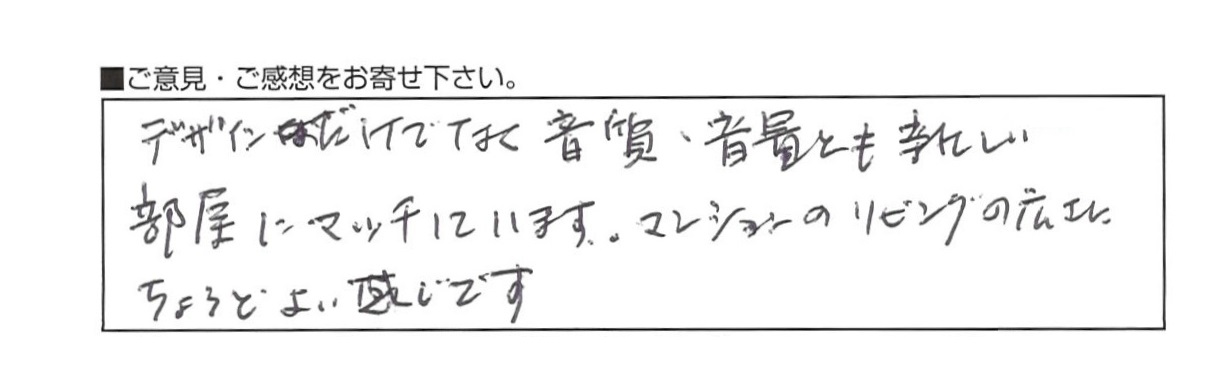 ■ご意見・ご感想をお寄せ下さい。
デザインだけでなく音質、音量とも新しい
部屋にマッチしています。マンションのリビングの広さに
ちょうどよい感じです